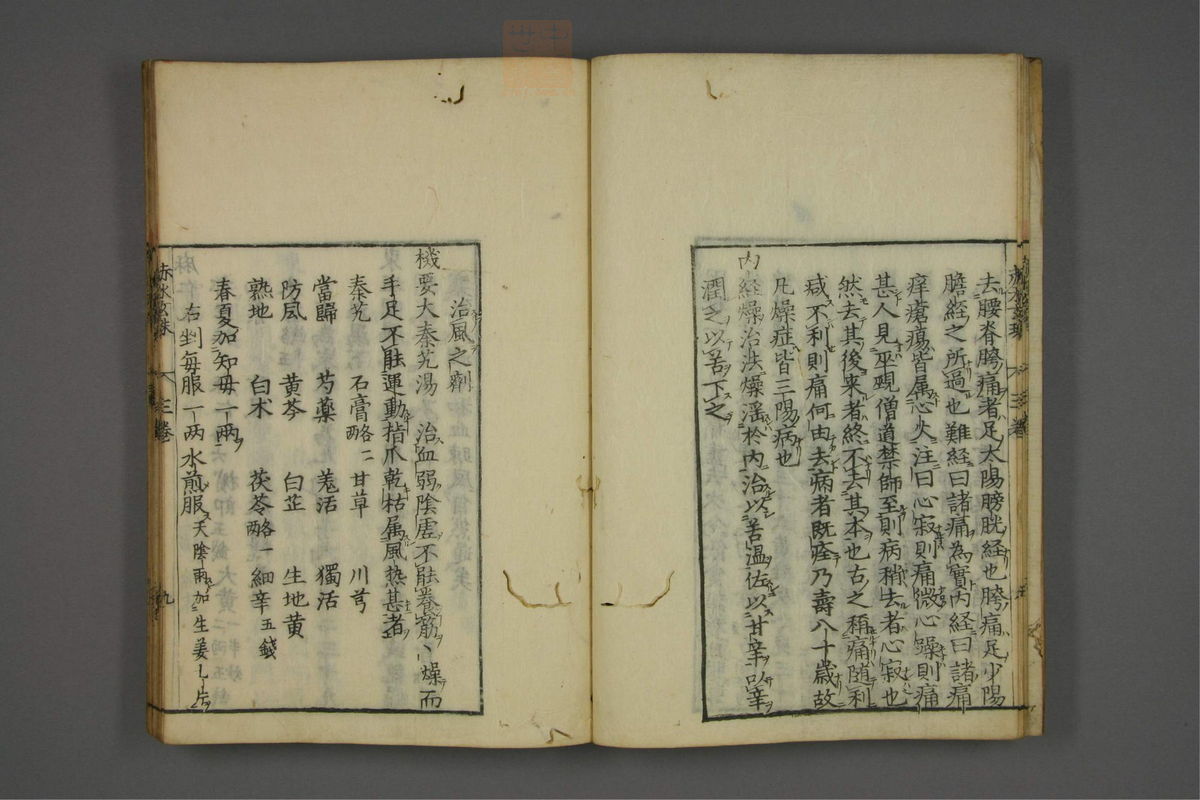 去腰脊胯痛者足太陽膀胱経也胯痛足少陽
膽経之所過也難経曰諸痛為實内経曰諸痛
痒瘡瘍皆属心火注曰心寂則痛微心躁則痛
甚人見平覡僧道禁師至則病稍去者心寂也
然去其後来者終不去其本也古之称痛随利
减不利則痛何由去病者既痊乃壽八十歳故
凡燥症皆三陽病也
内経燥治法燥淫於内治以苦温佐以甘辛以辛
潤之以苦下之
治風之劑
機要大秦艽湯 治血弱陰虚不能養筋丶燥而
手足不能運動指爪乾枯属風热甚者
秦艽 石膏略二 甘草 川芎
當歸 芍藥 羗活 獨活
防風 黄芩 白芷 生地黄
熟地 白朮 茯苓略一 細辛五錢
春夏加知母一兩
右剉毎服一两水煎服天陰雨加生姜七片
赤水玄珠 三卷 九